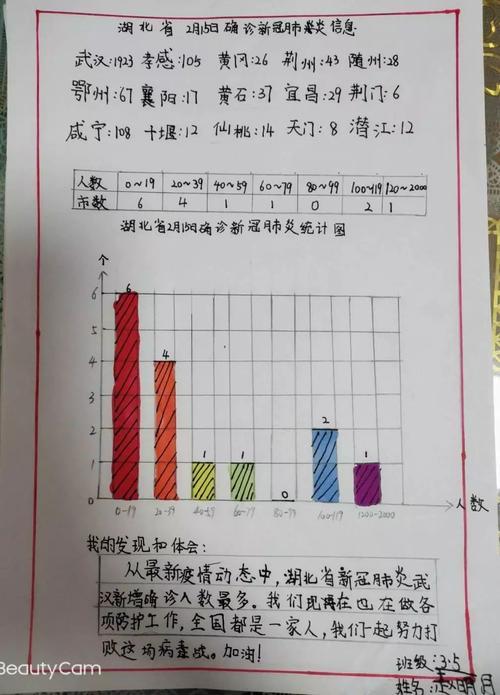 湖北省 2月15日确诊新冠肺炎信息
武汉:1923 孝感:105 黄冈:26 荆州:43 随州:28
鄂州:67 襄阳:17 黄石:37 宜昌:29 荆门:6
咸宁:108 十堰:12 仙桃:14 天门:8 潜江:12
人数 0~19 20~39 40~59 60~79 80~99 100~119 120~2000
市数 6 4 1 1 0 2 1
湖北省2月15日确诊新冠肺炎统计图
个
6 6
5
4 4
3
2 2
1 1 1 1
0 0
0-19 20-39 40-59 60-79 80-99 100-119 1200-2000 人数
我的发现和体会:
从最新疫情动态中,湖北省新冠肺炎武
汉新增确诊人数最多。我们现在也在做各
项防护工作,全国都是一家人,我们一起努力打
败这场病毒战。加油!
班级:3.5
姓名:明月
BeautyCam